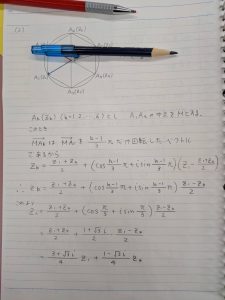 (2)
A₂(z₂)
A₅(z₅)
Aₖ(zₖ) (k=1, 2, …, 6) とし A₁A₄の中点をMとする。
このとき
MAₖは MA₁を (k-1)/3 π だけ回転したベクトル
であるから
zₖ = (z₁+z₄)/2 + (cos (k-1)/3 π + i sin (k-1)/3 π)(z₁ - (z₁+z₄)/2)
∴ zₖ = (z₁+z₄)/2 + (cos (k-1)/3 π + i sin (k-1)/3 π) (z₁-z₄)/2
z₂ = (z₁+z₄)/2 + (cos π/3 + i sin π/3) (z₁-z₄)/2
= (z₁+z₄)/2 + (1+√3 i)/2 (z₁-z₄)/2
= (3+√3 i)/4 z₁ + (1-√3 i)/4 z₄